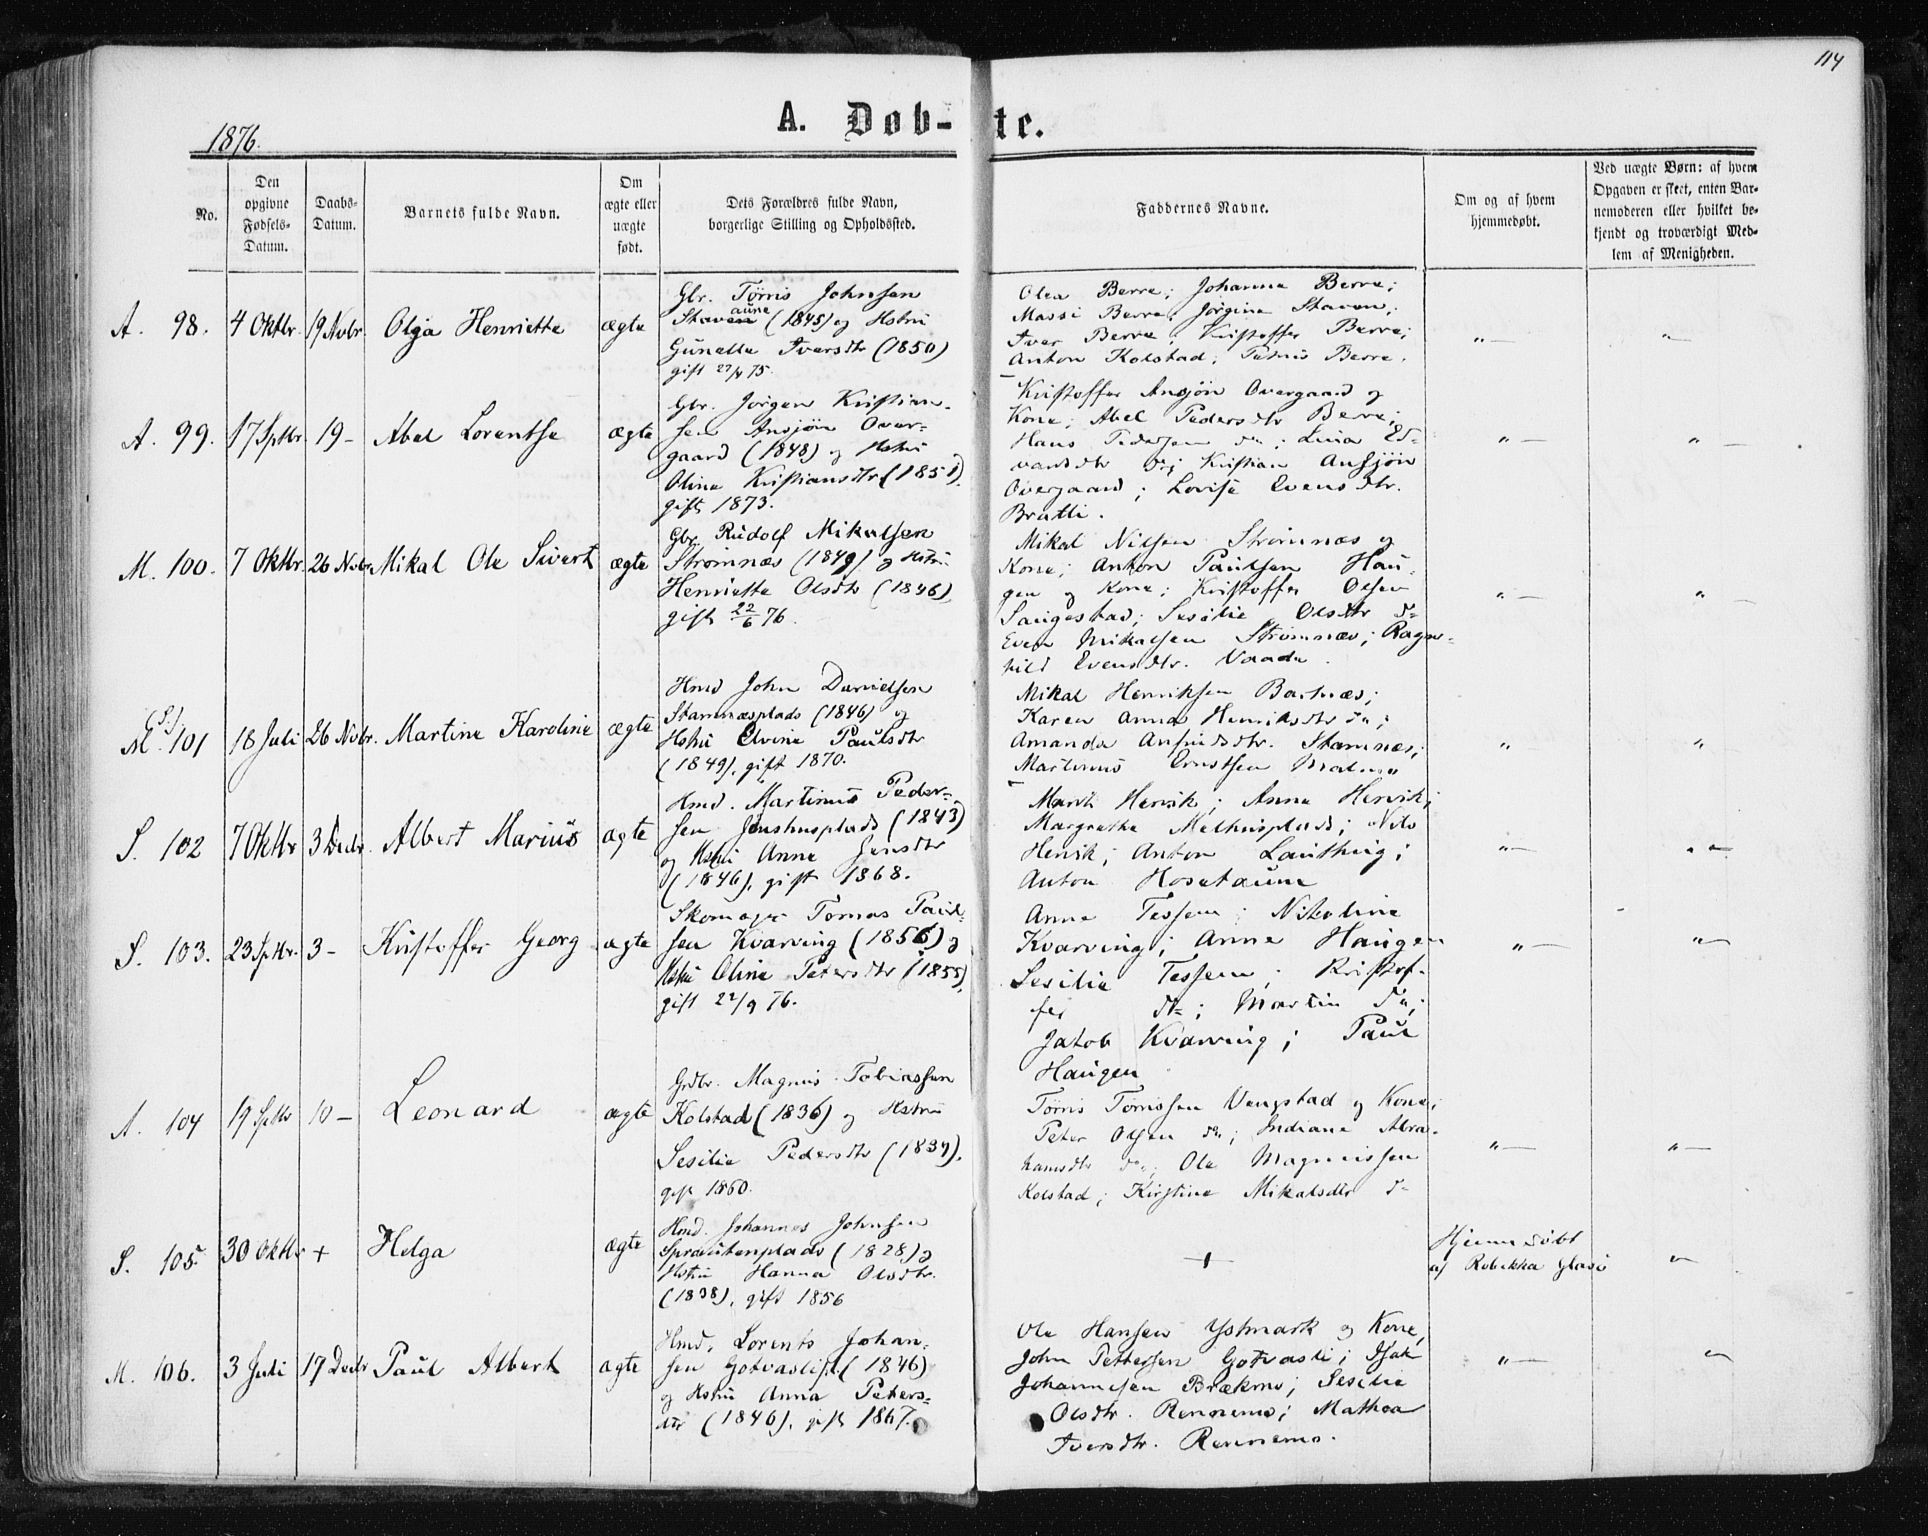 114
1876.
A. Døb- te.
No.
Den
opgivne
Fødsels-
Datum.
Daabs-
Datum.
Barnets fulde Navn.
Om
ægte eller
uægte
født.
Dets Forældres fulde Navn,
borgerlige Stilling og Opholdssted.
Faddernes Navne.
Om og af hvem
hjemmedøbt.
Ved uægte Børn: af hvem
Opgaven er skeet, enten Bar-
nemoderen eller hvilket be-
kjendt og troværdigt Med-
lem af Menigheden.
A. 98. 4 Oktbr. 19 Nvbr. Olga Henriette ægte
Gbr. Tørris Johnsen
Stavenaune (1845) og Hstru
Gunelle Iversdtr (1850)
gift 27/4 75.
Olea Berre; Johanna Berre;
Massi Berre; Jørgine Staven;
Iver Berre; Kristoffer Berre;
Anton Kolstad; Berre.
A. 99. 17 Sptbr. 19 - Abel Lorentse ægte
Gbr. Jørgen Kristian-
sen Ansjøn Over-
gaard (1848) og Hstru
Oline Kristiansdtr (1851)
gift 1873.
Kristoffer Ansjøn Overgaard og
Kone; Abel Pedersdtr Berre;
Hans Pedersen do; Lina Ed-
vardsdtr do; Kristian Ansjøn
Overgaard; Lovise Evensdtr.
Bratli.
M. 100. 7 Oktbr. 26 Nvbr. Mikal Ole Sivert ægte
Gbr. Rudolf Mikalsen
Strømnæs (1849) og Hstru
Henriette Olsdtr (1846)
gift 22/6 76.
Mikal Nilsen Strømnæs og
Kone; Anton Paulsen Hau-
gen og Kone; Kristoffer Olsen
Saugestad; Sesilie Olsdtr do
Even Mikalsen Strømnæs; Ragn-
hild Evensdtr. Vaada.
(S.)
M. 101 18 Juli 26 Nvbr. Martine Karoline ægte
Hmd John Danielsen
Stamnæsplads (1846) og
Hstru Elvine Paulsdtr
(1849), gift 1870.
Mikal Henriksen Bartnæs;
Karen Anna Henriksdtr do;
Amanda Anfindsdtr. Stamnæs;
Martinus Ernstsen Malmo
S. 102 7 Oktbr 3 Decbr. Albert Marius ægte
Hmd. Martinus Peder-
sen Jenshusplads (1843)
og Hstru Anne Jensdtr
(1846), gift 1868.
Marit Henrik; Anne Henrik;
Margrethe Melhusplads; Nils
Henrik; Anton Lauthug;
Anton Hosetaune
S. 103. 23 Sptbr. 3 - Kristoffer Georg ægte
Skomager Tomas Paul-
sen Kvarving (1856) og
Hstru Oline Petersdtr (1855),
gift 22/9 76.
Anne Tessem; Nikoline
Kvarving; Anne Haugen
Sesilie Tessem; Kristof-
fer do; Martin do;
Jakob Kvarving; Paul
Haugen
A. 104 19 Sptbr 10 - Leonard ægte
Grdbr. Magnus Tobiassen
Kolstad (1836) og Hstru
Sesilie Pedersdtr (1834),
gift 1860.
Tørris Tørrissen Vengstad og Kone;
Peter Olsen do; Indiane Abra-
hamsdtr do; Ole Magnussen
Kolstad; Kirstine Mikalsdtr do
S. 105. 30 Oktbr + Helga ægte
Hmd. Johannes Johnsen
Sprautenplads (1828) og
Hstru Hanna Olsdtr.
(1838), gift 1856
+
Hjemmedøbt
af Rebekka Glasø
M. 106. 3 Juli 17 Decbr Paul Albert ægte
Hmd. Lorents Johan-
sen Gotvasli (1846)
og Hstru Anna Peters-
dtr (1846), gift 1867.
Ole Hansen Ystmark og Kone,
John Pettersen Gotvasli; Isak
Johannesen Brækmo; Sesilie
Olsdtr. Rennemo; Mathea
Iversdtr. Rennemo.